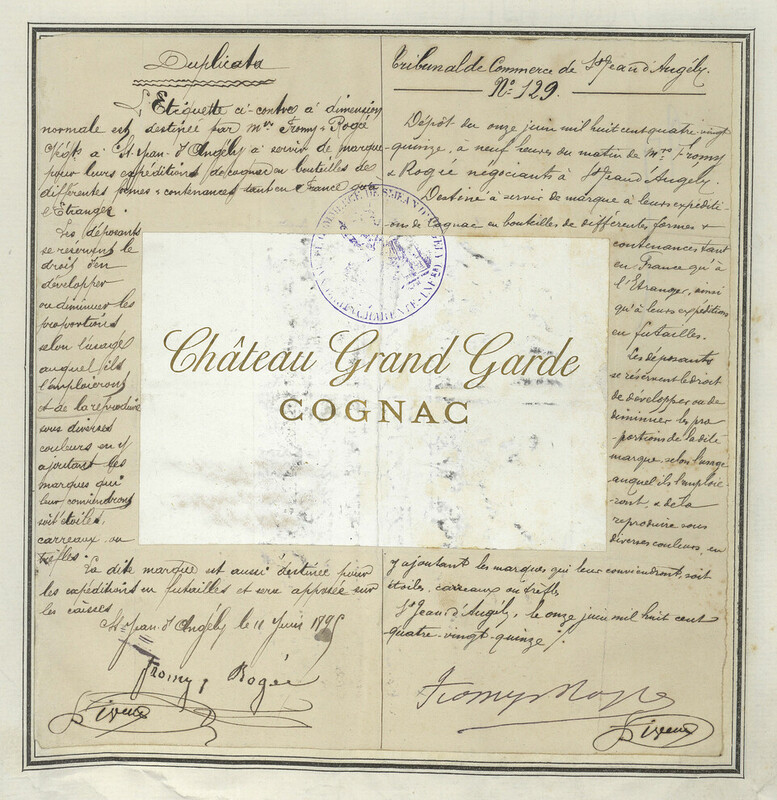 Duplicata
L'Etiquette ci-contre à dimension
normale est destinée par Mrs Fromy & Rogée
Négts à St Jean d'Angély à servir de marque
pour leurs expéditions de cognac en bouteilles de
différentes formes & contenances tant en France qu'à
l'Etranger.
Les déposants
se réservent le
droit d'en
développer
ou diminuer les
proportions
selon l'usage
auquel ils
l'emploieront
et de la reproduire
sous diverses
couleurs en y
ajoutant les
marques qui
leur conviendront
soit étoiles,
carreaux ou
trèfles.
La dite marque est aussi destinée pour
les expéditions en futailles et sera apposée sur
les caisses
St Jean d'Angély le 11 Juin 1895
Fromy, Rogée
Tribunal de Commerce de St Jean d'Angély.
No. 129.
Dépôt du onze juin mil huit cent quatre vingt
quinze, à neuf heures du matin de Mrs Fromy
& Rogée négociants à St Jean d'Angély.
Destiné à servir de marque à leurs expédit-
ions de Cognac en bouteilles de différentes formes &
contenances tant
en France qu'à
l'Etranger, ainsi
qu'à leurs expéditions
en futailles.
Les déposants
se réservent le droit
de développer ou de
diminuer les pro
-portions de la dite
marque selon l'usage
auquel ils l'emploie-
-ront, & de la
reproduire sous
diverses couleurs, en
y ajoutant les marques qui leur conviendront, soit
étoiles, carreaux ou trèfles
St Jean d'Angély, le onze juin mil huit cent
quatre-vingt-quinze ./.
Fromy Rogée
Château Grand Garde
COGNAC